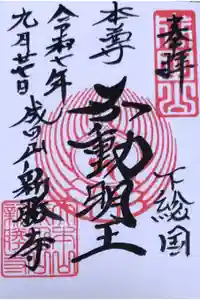 奉拝
下総国
本尊
不動明王
令和七年
九月廿七日
成田山新勝寺